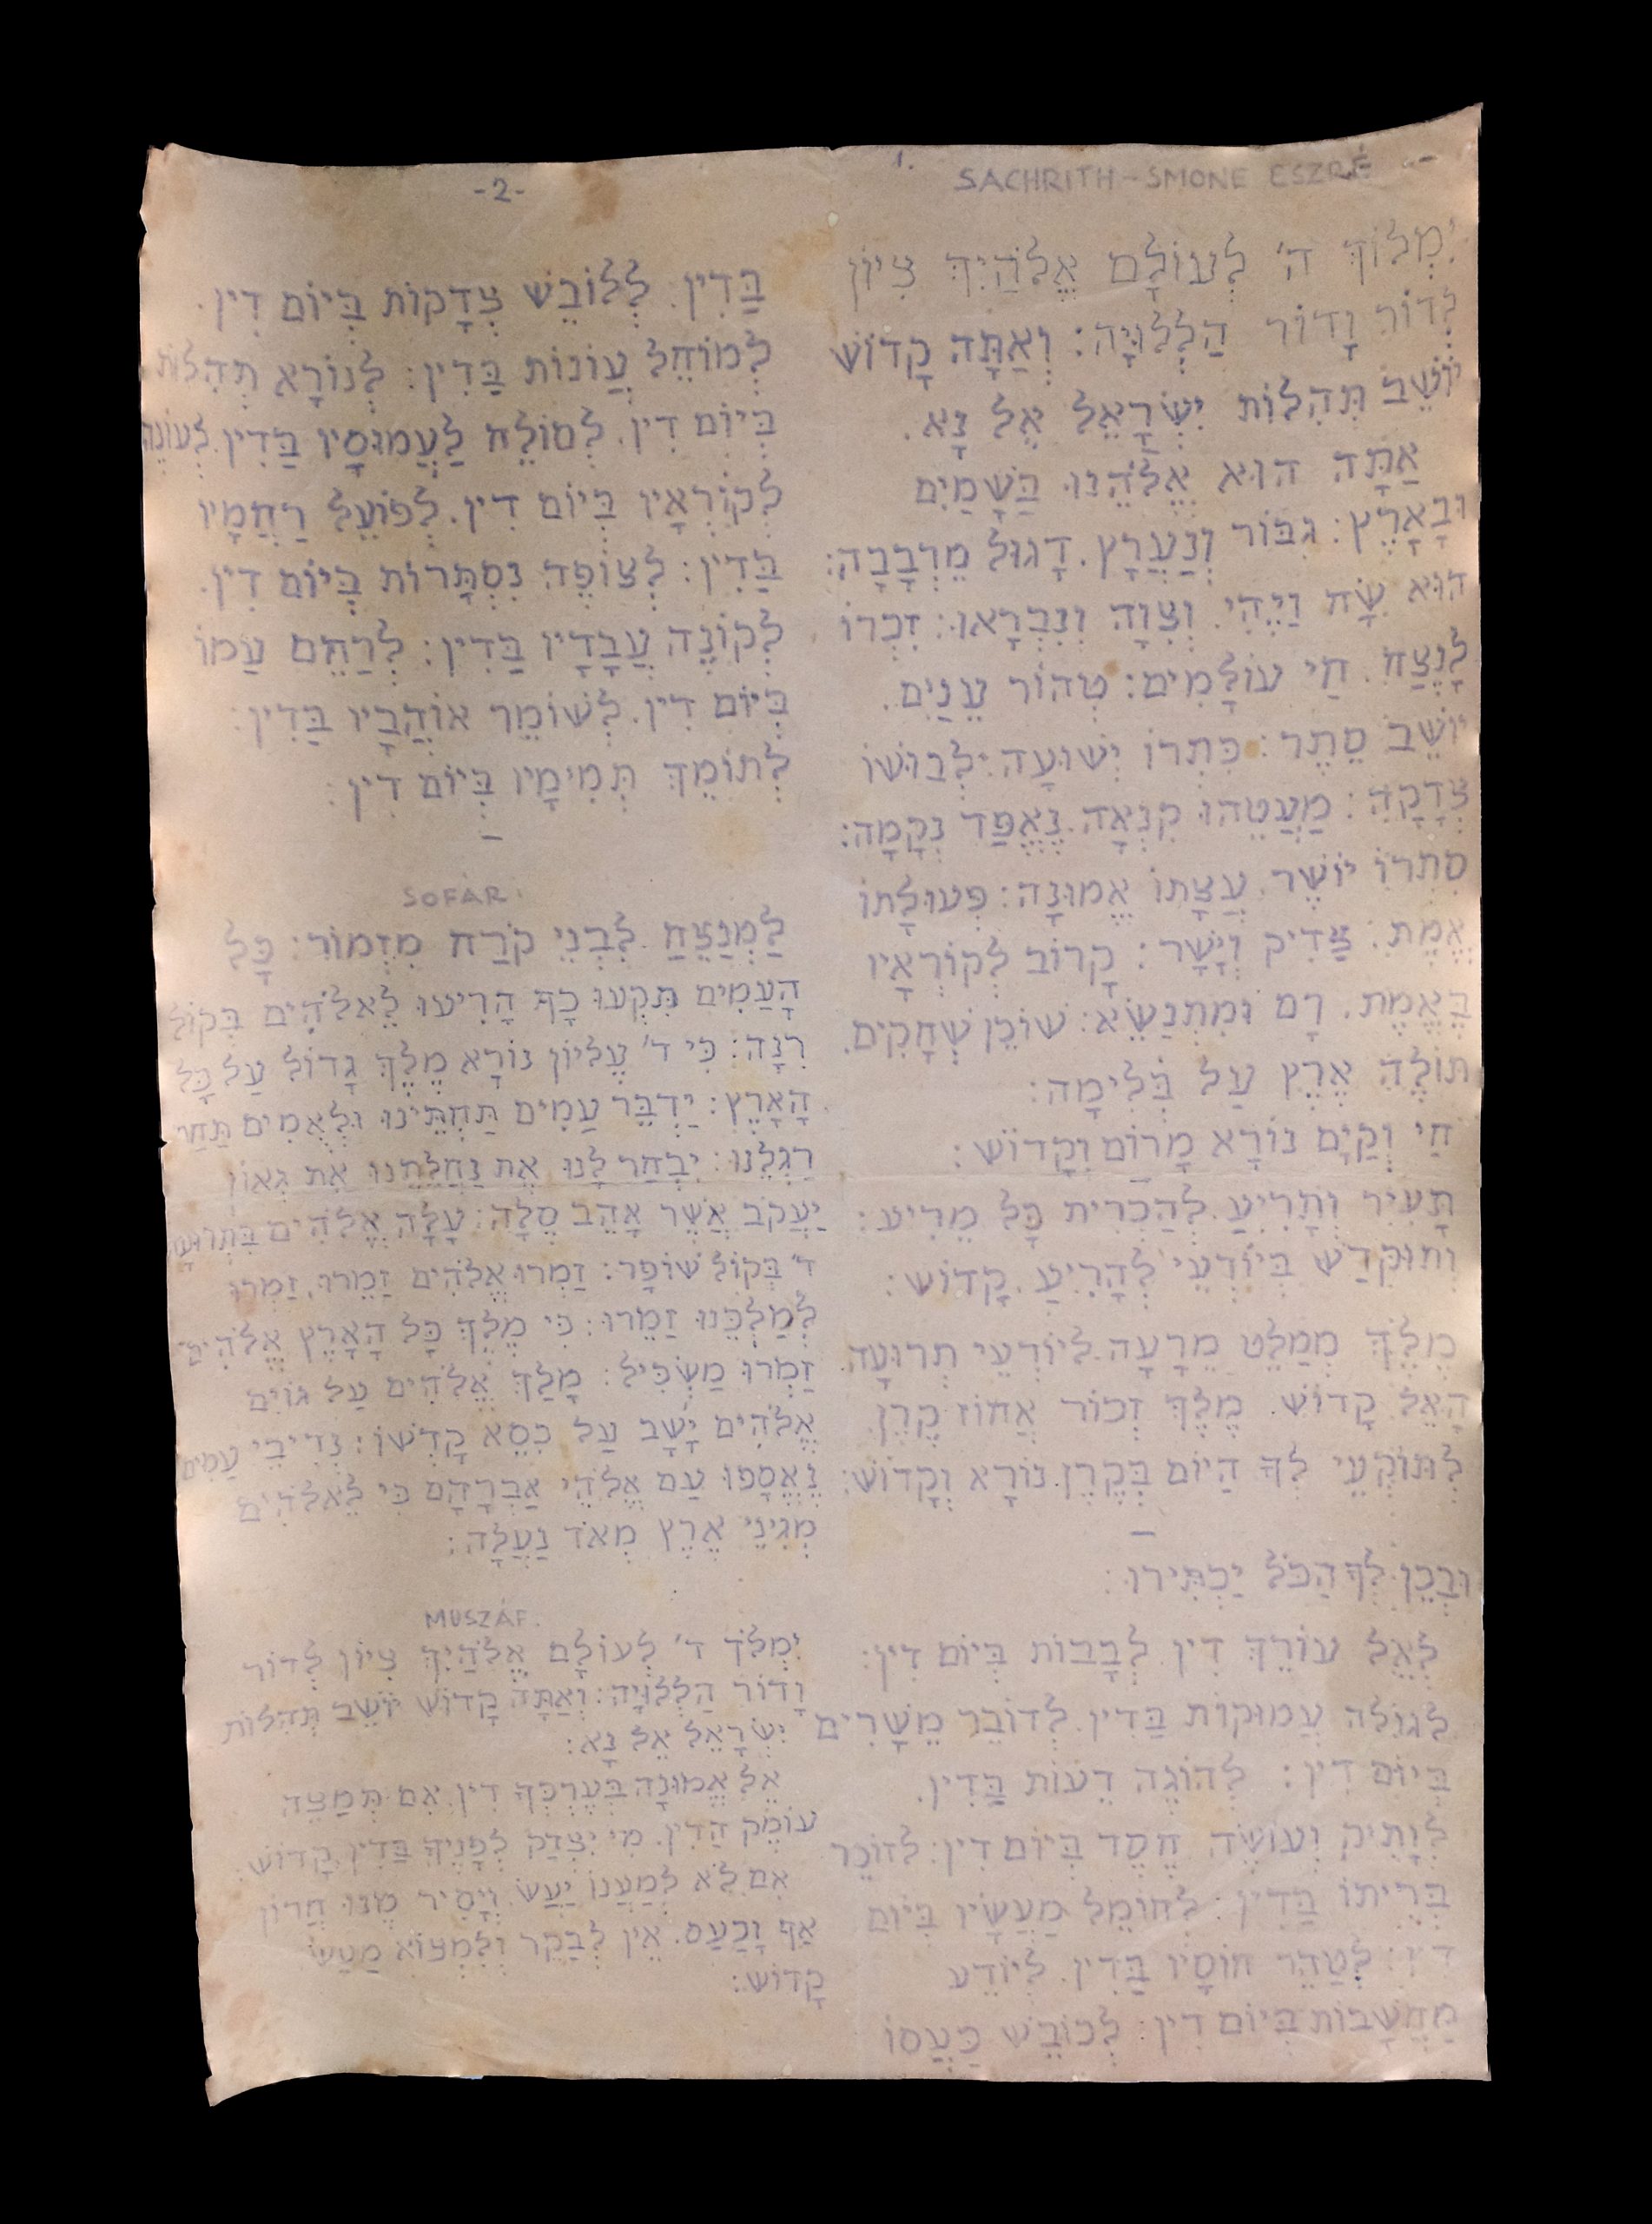 1.
SACHRITH - SMONE ESZRÉ
יִמְלוֹךְ ה' לְעוֹלָם אֱלֹהַיִךְ צִיוֹן
לְדוֹר וָדוֹר הַלְלוּיָה: וְאַתָּה קָדוֹשׁ
יוֹשֵׁב תְּהִלוֹת יִשְׂרָאֵל אֵל נָא.
אַתָּה הוּא אֱלֹהֵנוּ בַּשָׁמַיִם
וּבָאָרֶץ: גִבּוֹר וְנַעֲרָץ. דָגוּל מֵרְבָבָה:
הוּא שָׂח וַיֶהִי. וְצִוָה וְנִבְרָאוּ: זִכְרוֹ
לָנֶצַח. חַי עוֹלָמִים: טְהוֹר עֵנַיִם.
יוֹשֵׁב סֵתֶר: כִּתְרוֹ יְשׁוּעָה: לְבוּשׁוֹ
צְדָקָה: מַעֲטֵהוּ קִנְאָה. נֶאֱפַּד נְקָמָה:
סִתְרוֹ יוֹשֶׁר. עֲצָתוֹ אֱמוּנָה: פְּעוּלָתוֹ
אֱמֶת: צַדִיק וְיָשָׁר: קָרוֹב לְקוֹרְאָיו
בֶּאֱמֶת. רָם וּמִתְנַשֵׂא: שׁוֹכֵן שְׁחָקִים.
תוֹלֶה אֶרֶץ עַל בְּלִימָה:
חַי וְקַיָם נוֹרָא מָרוֹם וְקָדוֹשׁ:
תָעִיר וְתָרִיעַ. לְהַכְרִית כָּל מֵרִיע:
וְתוּקְדַשׁ בְּיוֹדְעֵי לְהָרִיעַ. קָדוֹשׁ:
מֶלֶךְ מְמַלֵט מֵרָעָה. לְיוֹדְעֵי תְרוּעָה.
הָאֵל קָדוֹשׁ. מֶלֶךְ זְכוֹר אֲחוּז קֶרֶן.
לְתוֹקְעֵי לְךָ הַיוֹם בְּקֶרֶן. נוֹרָא וְקָדוֹשׁ:
וּבְכֵן לְךָ הַכֹּל יַכְתִּירוּ:
לְאֵל עוֹרֵךְ דִין. לְבָבוֹת בְּיוֹם דִין:
לְגוֹלֵה עֲמוּקוֹת בַּדִין. לְדוֹבֵר מֵשָׁרִים
בְּיוֹם דִין: לְהוֹגֶה דֵעוֹת בַּדִין.
לְוָתִיק וְעוֹשֶׂה חֶסֶד בְּיוֹם דִין: לְזוֹכֵר
בְּרִיתוֹ בַּדִין: לְחוֹמֵל מַעֲשָׂיו בְּיוֹם
דִין: לְטַהֵר חוֹסָיו בַּדִין. לְיוֹדֵע
מַחֲשָׁבוֹת בְּיוֹם דִין: לְכוֹבֵשׁ כַּעֲסוֹ
-2-
בַּדִין. לְלוֹבֵשׁ צְדָקוֹת בְּיוֹם דִין.
לְמוֹחֵל עֲוֹנוֹת בַּדִין: לְנוֹרָא תְהִלוֹת
בְּיוֹם דִין. לְסוֹלֵח לַעֲמוּסָיו בַּדִין. לְעוֹנֶה
לְקוֹרְאָיו בְּיוֹם דִין. לְפוֹעֵל רַחֲמָיו
בַּדִין: לְצוֹפֶה נִסְתָּרוֹת בְּיוֹם דִין.
לְקוֹנֶה עֲבָדָיו בַּדִין: לְרַחֵם עַמוֹ
בְּיוֹם דִין. לְשׁוֹמֵר אוֹהֲבָיו בַּדִין:
לְתוֹמֵךְ תְּמִימָיו בְּיוֹם דִין:
SOFÁR.
לַמְנַצֵחַ לִבְנֵי קֹרַח מִזְמוֹר: כָּל
הָעַמִים תִּקְעוּ כָף הָרִיעוּ לֵאלֹהִים בְּקוֹל
רִנָה: כִּי ד' עֶלְיוֹן נוֹרָא מֶלֶךְ גָדוֹל עַל כָּל
הָאָרֶץ: יַדְבֵּר עַמִים תַּחְתֵּינוּ וּלְאֻמִים תַּחַת
רַגְלֵנוּ: יִבְחַר לָנוּ אֶת נַחֲלָתֵנוּ אֶת גְאוֹן
יַעֲקֹב אֲשֶׁר אָהֵב סֶלָה: עָלָה אֱלֹהִים בִּתְרוּעָה
ד' בְּקוֹל שׁוֹפָר: זַמְרוּ אֱלֹהִים זַמֵרוּ, זַמְרוּ
לְמַלְכֵּנוּ זַמֵרוּ: כִּי מֶלֶךְ כָּל הָאָרֶץ אֱלֹהִים
זַמְרוּ מַשְׂכִּיל: מָלַךְ אֱלֹהִים עַל גוֹיִם
אֱלֹהִים יָשָׁב עַל כִּסֵא קָדְשׁוֹ: נְדִיבֵי עַמִים
נֶאֱסָפוּ עַם אֱלֹהֵי אַבְרָהָם כִּי לֵאלֹהִים
מְגִינֵי אֶרֶץ מְאֹד נַעֲלָה:
MUSZÁF.
יִמְלֹךְ ד' לְעוֹלָם אֱלֹהַיִךְ צִיוֹן לְדוֹר
וָדוֹר הַלְלוּיָה: וְאַתָּה קָדוֹשׁ יוֹשֵׁב תְּהִלוֹת
יִשְׂרָאֵל אֵל נָא:
אֵל אֱמוּנָה בְּעֶרְכְּךָ דִין. אִם תְּמַצֶה
עוֹמֶק הַדִין. מִי יִצְדַק לְפָנֶיךָ בַּדִין קָדוֹשׁ:
אִם לֹא לְמַעֲנוֹ יַעֲשׂ. וְיָסִיר מֶנוּ חֲרוֹן
אַף וָכַעַס. אֵין לְבַקֵר וְלִמְצוֹא מַעַשׂ
קָדוֹשׁ: